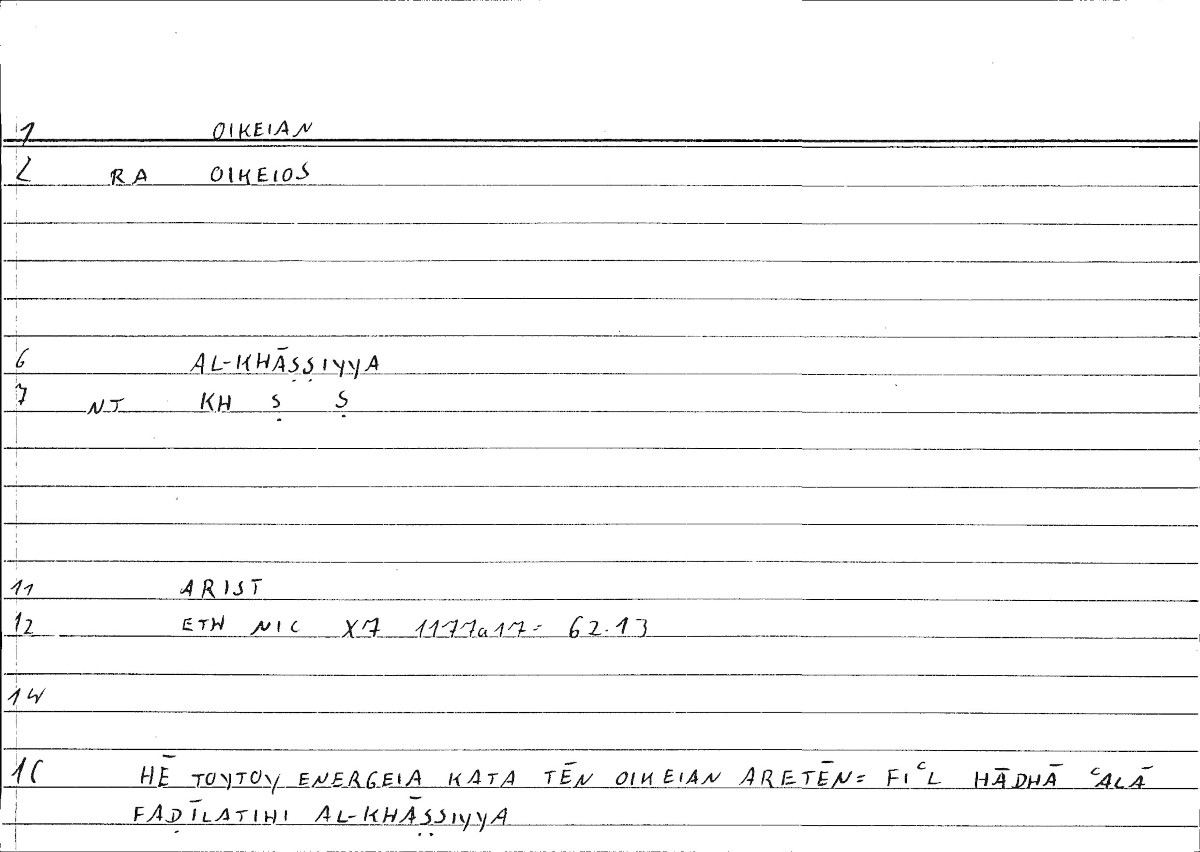 1 OIKEIAN
2 RA OIKEIOS
6 AL-KHĀṢṢIYYA
7 NT KH Ṣ Ṣ
11 ARIST
12 ETH NIC X7 1177a17= 62.13
14
15 HĒ TOYTOY ENERGEIA KATA TĒN OIKEIAN ARETĒN= FIᶜL HĀDHĀ ᶜALĀ
FAḌĪLATIHI AL-KHĀṢṢIYYA